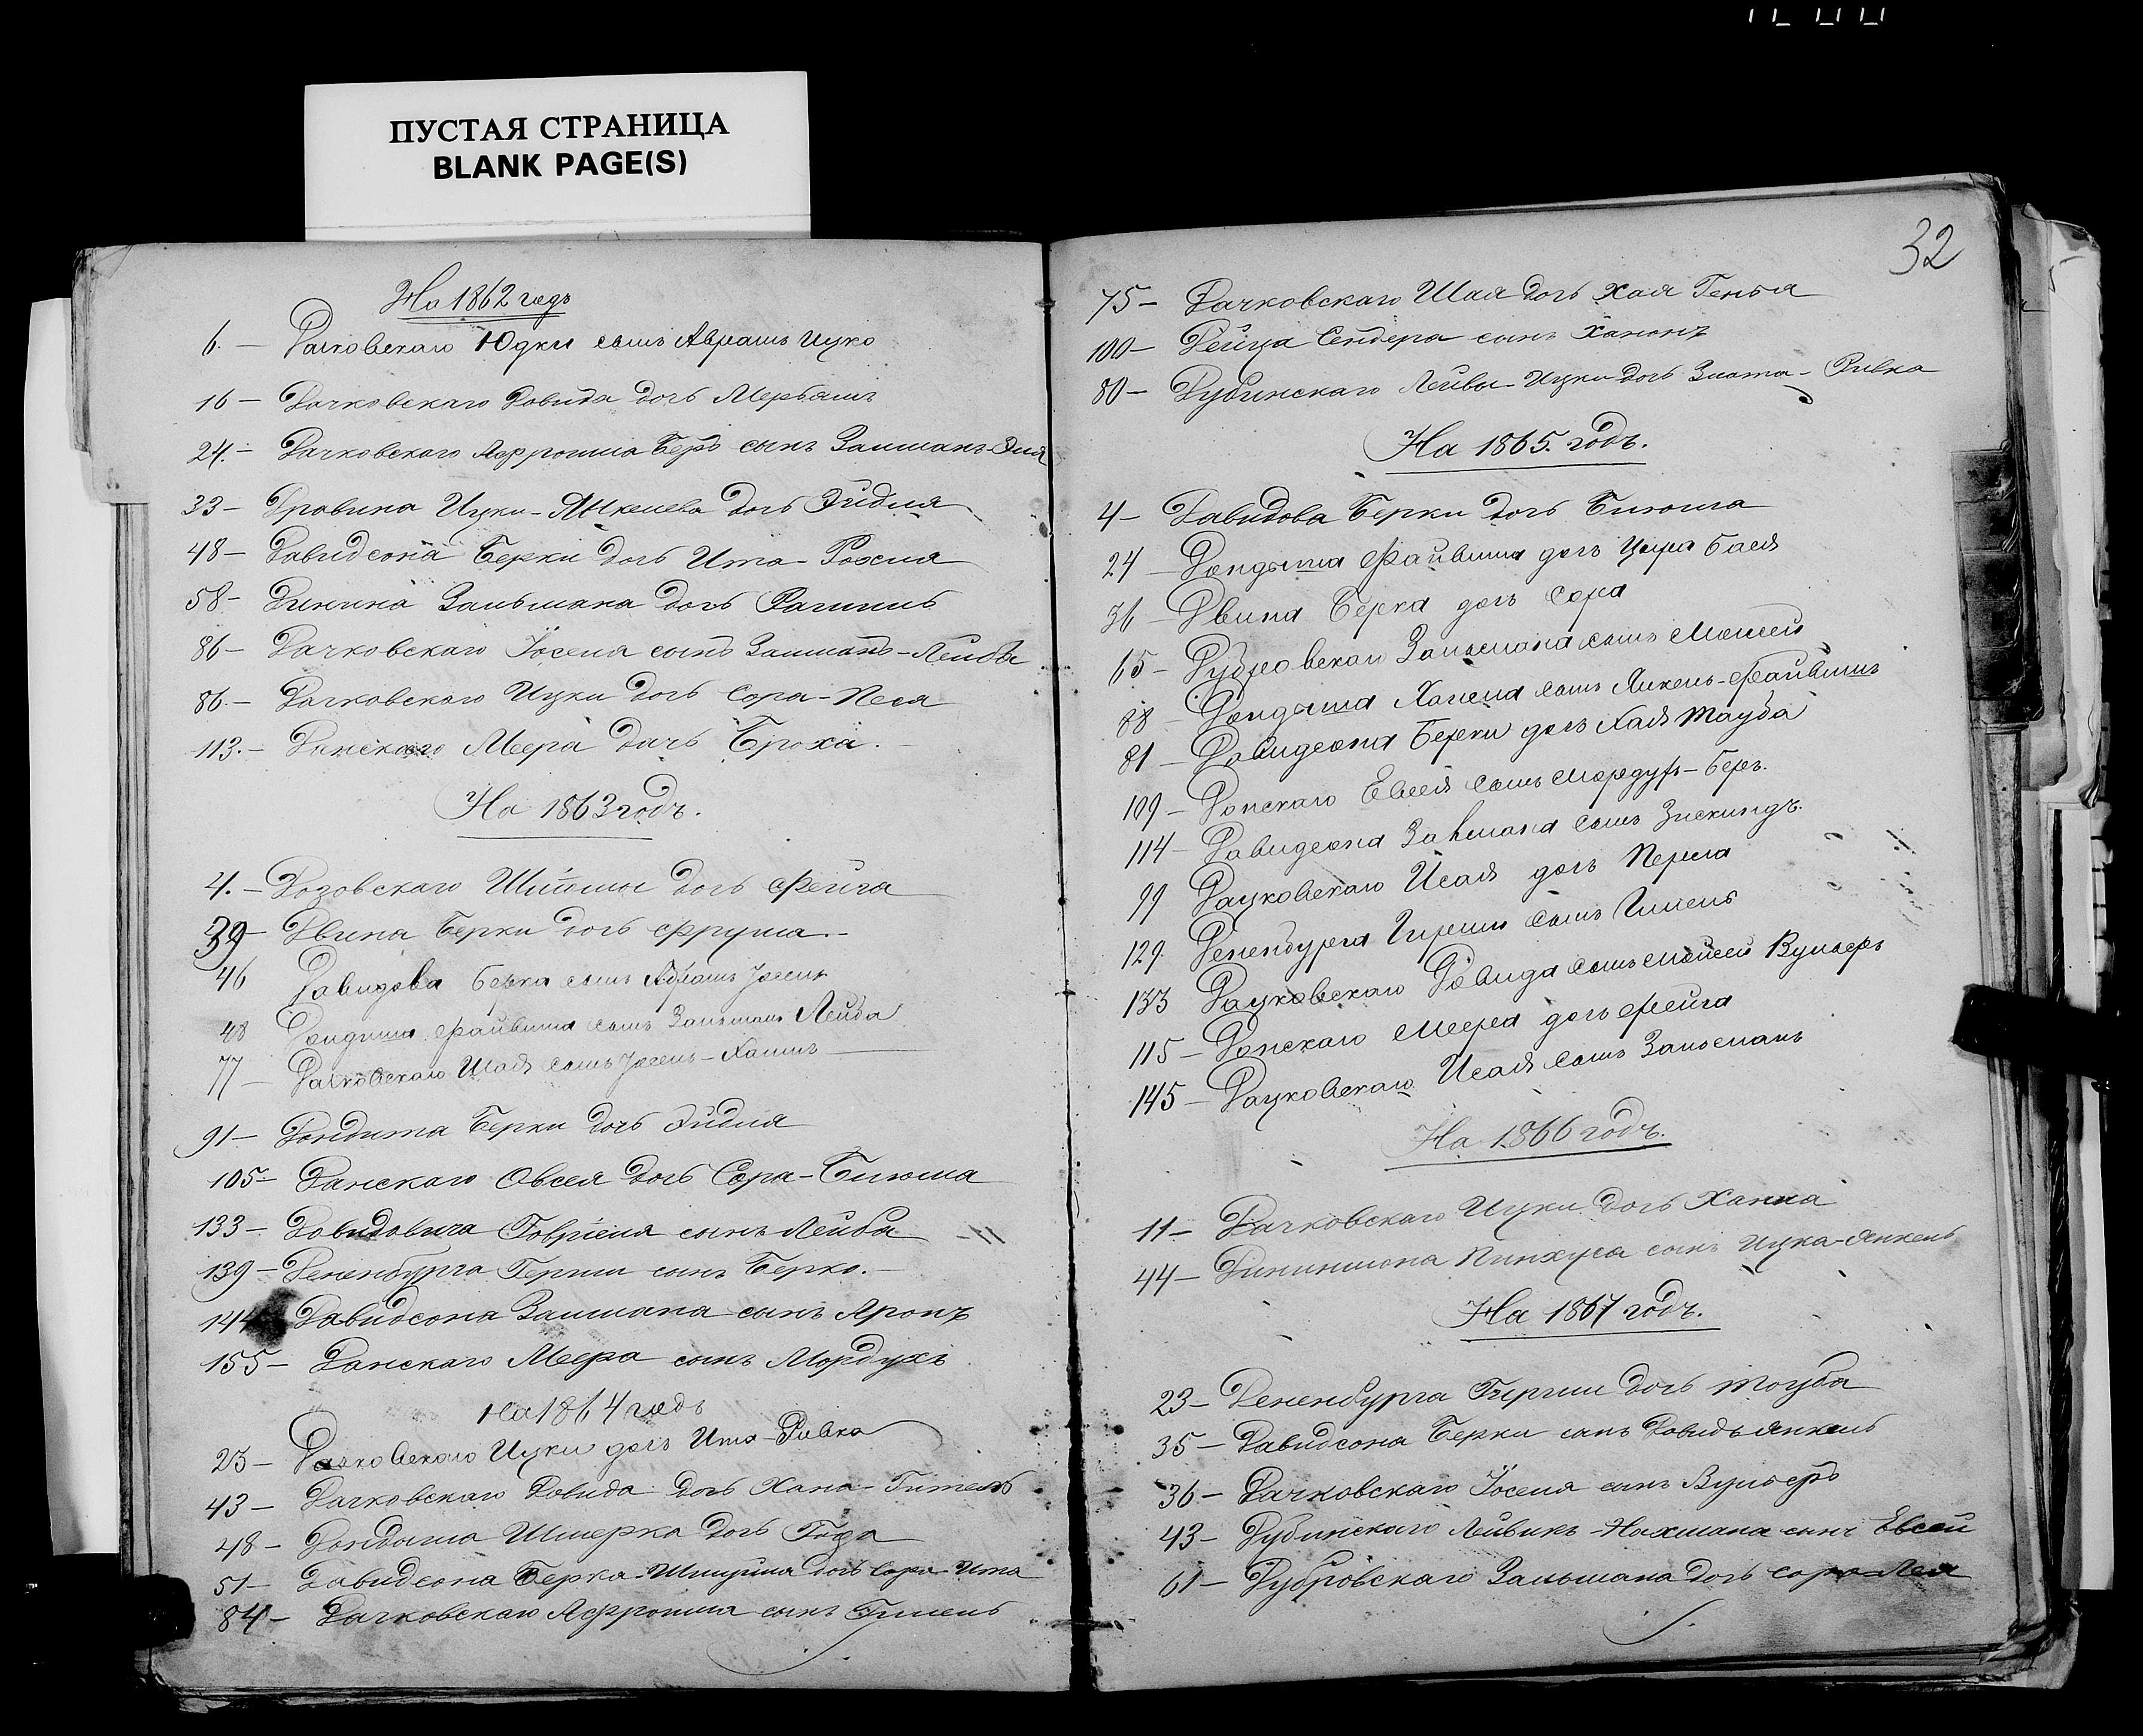 ПУСТАЯ СТРАНИЦА
BLANK PAGE(S)
На 1862 годъ
6. — Рачковскаго Юдки сынъ Абрамъ Ицко
16 — Дачковскаго Довида дочь Мерьямъ
24. — Дачковскаго Беръ сынъ Залманъ-Эля
33 — Ицки-Янкелева дочь Эйдля
48 — Давидсона Берки дочь Ита-Рохля
58 — Динина Зальмана дочь
86 — Дачковскаго Іоселя сынъ Залманъ-Лейба
86. — Дачковскаго Ицки дочь Сора-Песя
113. — Донскаго Меера дочь Броха.
На 1863 годъ.
4. — Дозовскаго дочь Фейга
39 — Двина Берки дочь Фрума. —
46 Давидова Берка сынъ Абрамъ Іосель
48 Дондыша Файвиша сынъ Зальманъ Лейба
77 — Дачковскаго Шая сынъ Іосель-Хаимъ
91 — Дондыша Берки дочь Эйдля
105 — Данскаго Овсея дочь Сора-Блюма
133 — Довидовича Говріеля сынъ Лейба
139 — Дененбурга Герши сынъ Берко. —
144 Давидсона Залмана сынъ Аронъ
155 — Данскаго Меера сынъ Мордухъ
На 1864 годъ
23 — Дачковскаго Ицки дочь Ита-Ривка
43 — Дачковскаго Довида дочь Хана-Гитель
48 — Дондыша Шмерка дочь Года
51 — Давидсона Берка-Шмуйла дочь Сора-Ита
84 — Дачковскаго сынъ Гимель
32
75 — Дачковскаго Шая дочь Хая Генья
100 — Дейча Сендера сынъ Ханонъ
80 — Дубинскаго Лейвы-Ицки дочь Злата-Ривка
На 1865. годъ.
4 — Давидова Берки дочь Блюма
24 — Дондыша Файвиша дочь Цыра Бася
36 — Двина Берка дочь Сора
65 — Дубровскаго Зальмана сынъ Моисей
88 — Дондыша Хацеля сынъ Янкель-Файвишъ
81 — Давидсона Берки дочь Хая Тауба
109 — Донскаго Евсея сынъ Мордухъ-Беръ.
114 — Давидсона Залмана сынъ Зискиндъ.
99 Дацковскаго Исая дочь Перла
129. Дененбурга Гирши сынъ Гимель
133 Дацковскаго Довида сынъ Моисей Вульфъ
115 — Донскаго Меера дочь Фейга
145 — Дацковскаго Исая сынъ Зальманъ
На 1866 годъ.
11 — Дачковскаго Ицки дочь Ханна
44 — Пинхуса сынъ Ицка-Янкель
На 1867 годъ.
23 — Дененбурга Гирши дочь Тоуба
35 — Давидсона Берки сынъ Довидъ Янкель
36 — Дачковскаго Іоселя сынъ Вульфъ
43 — Дубинскаго Лейвикъ-Нохмана сынъ Евсей
61 — Дубровскаго Зальмана дочь Сора-Лея